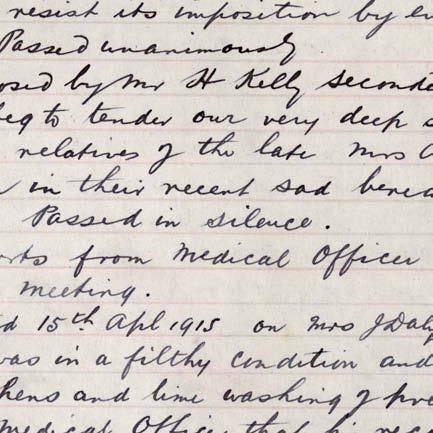 resist its imposition by
Passed unanimously.
osed by Mr H Kelly seconde
beg to tender our very deep s
relatives of the late Mrs
in their recent sad berea
Passed in silence.
orts from Medical Officer
meeting.
ed 15th Apl 1915 on Mrs J Daly
was in a filthy condition and
phens and lime washing of pre
Medical Officer that he reco